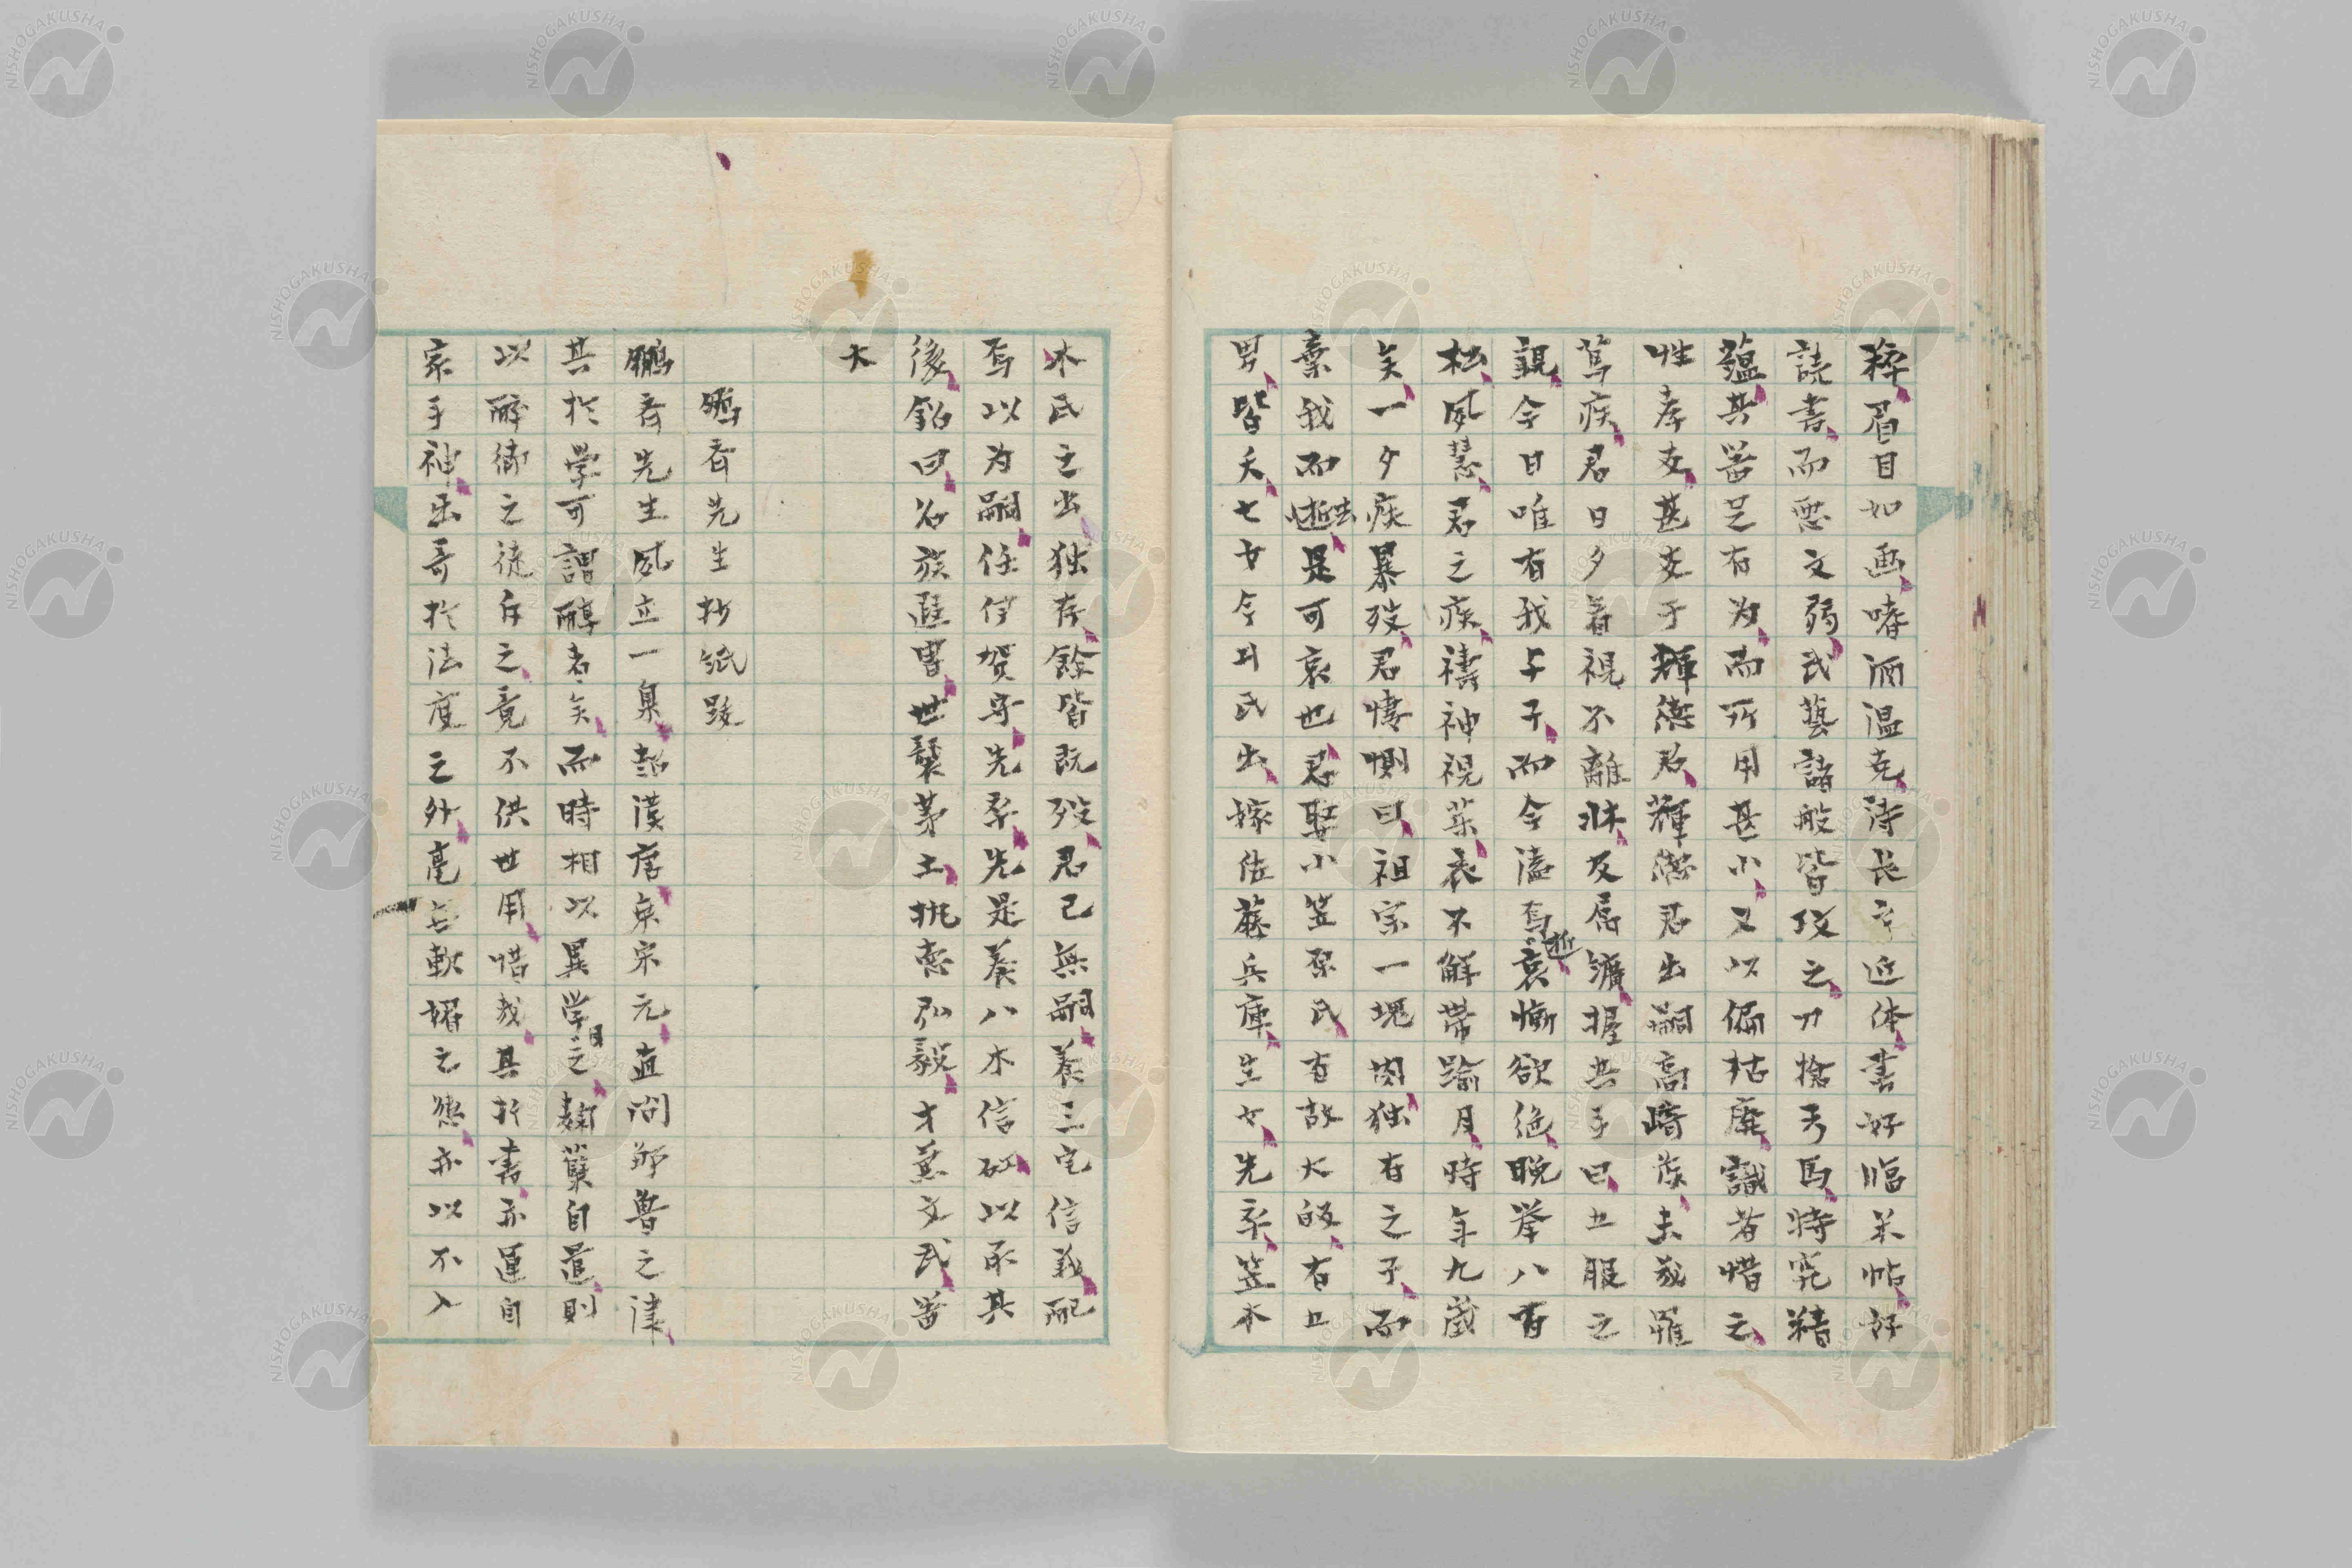 粹眉目如画嗜酒温克詩長於近体書好臨米帖好
読書而悪文弱武藝諸般皆攻之刀槍弓馬特究精
蘊其器足有为而所用甚小又以偏枯廃識者惜之
性孝友甚友于輝徳君輝徳君出嗣高崎侯未幾罹
篤疾君日夕着視不離牀及属纊握共手曰丑服之
親今日唯有我与子而今溘焉逝哀慟欲絶晩挙八有
松夙慧君之疾禱神視薬衣不解帯踰月時年九歳
矣一夕疾暴歿君悽惻曰祖宗一塊肉独有之子而
棄我而逝去是可哀也君娶小笠原氏有故大皈有丑
男皆夭七女今丑氏出嫁佐藤兵庫生女先卒笠木
木氏之出独存餘皆既歿君已無嗣養三宅信義配
焉以为嗣任伊賀守先卒先是養八木信砡以承其
後銘曰
名族匪冑世襲茅土桃恵弘毅才兼文武啬
大
鵬斎先生抄紙跋
鵬斎先生夙立一梟起漢唐宋元直問鄒魯之津
其於学可謂醇者矣而時相以異学目之麹糵自遣則
以酔衢之徒斥之竟不供世用惜哉其於書亦運自
家手神出哥於法度之外毫無軟媚之態亦以不入